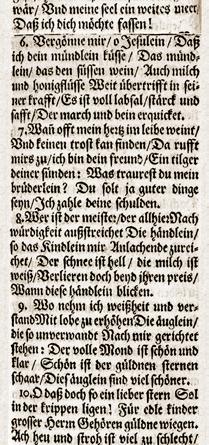 wär/ Vnd meine seel ein weites meer
Daß ich dich möchte fassen!
6. Vergönne mir/ o Jesulein/ Daß
ich dein mündlein küsse/ Das münd-
lein/ das den süssen wein/ Auch milch
und honigflüsse Weit übertrifft in sei-
ner krafft/ Es ist voll labsal/ stärck und
safft/ Der march und bein erquicket.
7. Wañ offt mein hertz im leibe weint/
Vnd keinen trost kan finden/ Da rufft
mirs zu/ ich bin dein freund/ Ein tilger
deiner sünden: Was traurest du mein
brüderlein? Du solt ja guter dinge
seyn/ Ich zahle deine schulden.
8. Wer ist der meister/ der allhier Nach
würdigkeit außstreichet Die händlein/
so das Kindlein mir Anlachende zurei-
chet/ Der schnee ist hell/ die milch ist
weiß/ Verlieren doch beyd ihren preis/
Wann diese händlein blicken.
9. Wo nehm ich weißheit und ver-
stand Mit lobe zu erhöhen Die äuglein/
die so unverwandt Nach mir gerichtet
stehen: Der volle Mond ist schön und
klar/ Schön ist der güldnen sternen
schaar/ Dies äuglein sind viel schöner.
10. O daß doch so ein lieber stern Sol
in der krippen ligen! Für edle kinder
grosser Herrn Gehören güldne wiegen.
Ach heu und stroh ist viel zu schlecht/